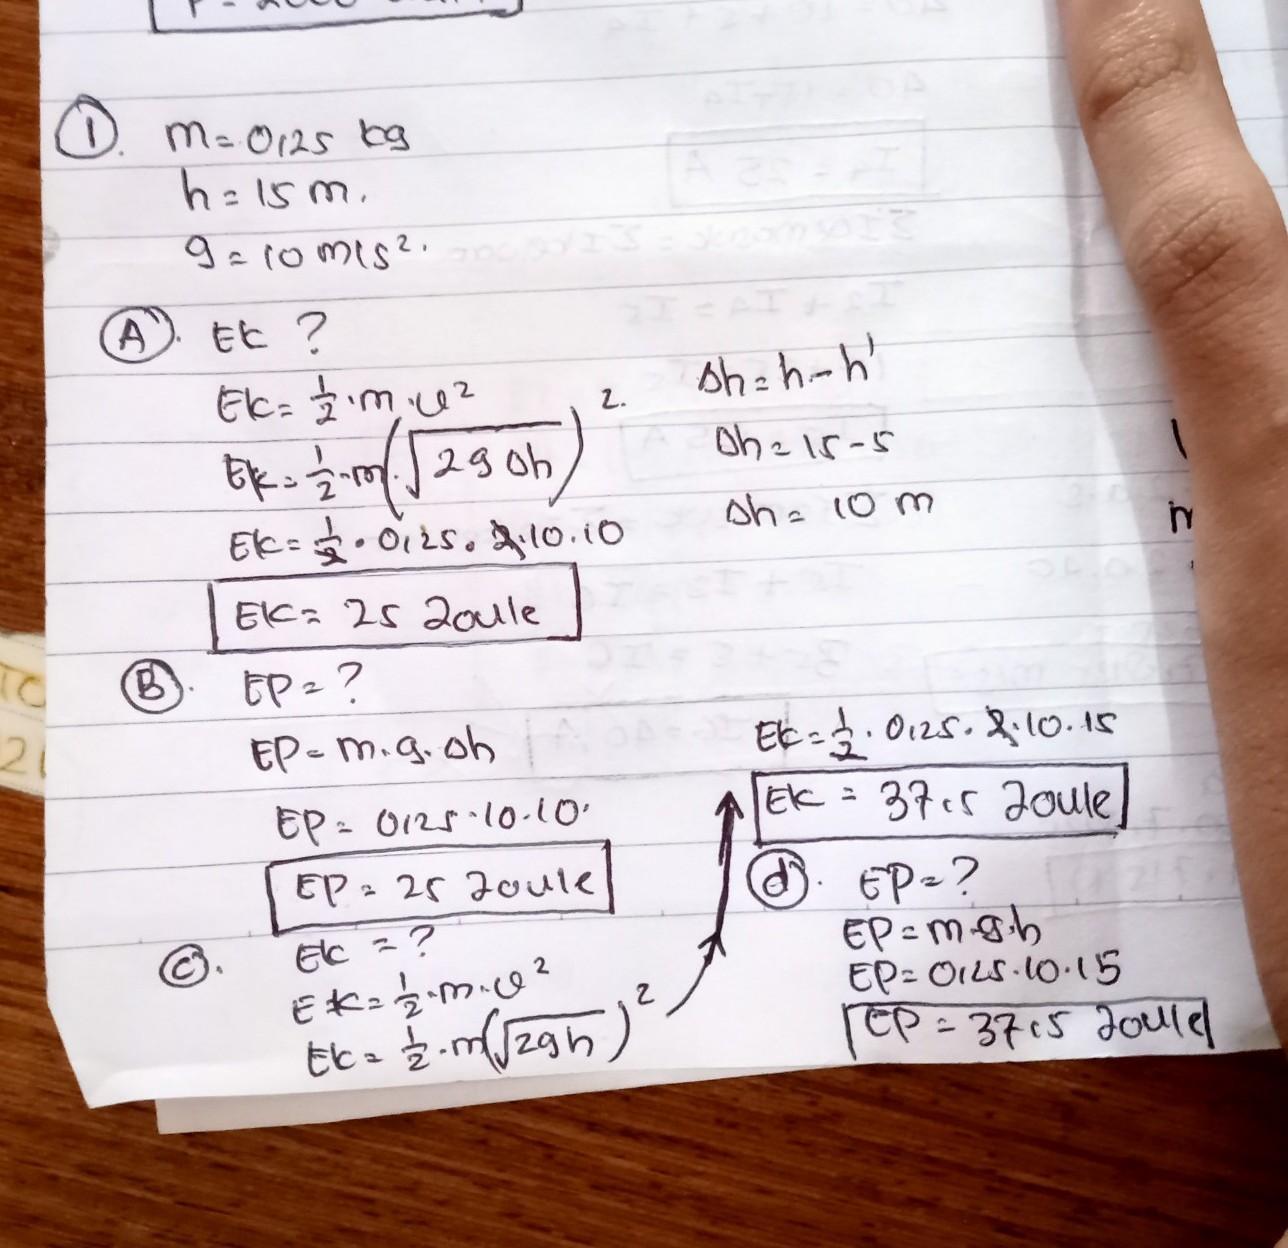 ① m = 0,25 kg
h = 15 m.
g = 10 m/s².
Ⓐ. EK ?
EK = ½ · m · v²
EK = ½ · m (√2g Δh)².
EK = ½ · 0,25 . 2 . 10 . 10
EK = 25 Joule
Δh = h - h'
Δh = 15 - 5
Δh = 10 m
Ⓑ. EP = ?
EP = m . g . Δh
EP = 0,25 . 10 . 10.
EP = 25 Joule
Ⓒ. EK = ?
EK = ½ · m · v²
EK = ½ . m (√2gh)²
EK = ½ . 0,25 . 2 . 10 . 15
EK = 37,5 Joule
ⓓ. EP = ?
EP = m . g . h
EP = 0,25 . 10 . 15
EP = 37,5 Joule